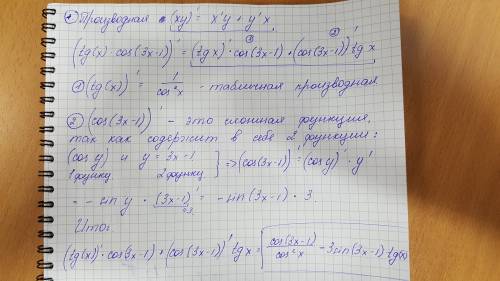 * Производная (xy)' = x'y + y'x
(tg(x) · cos(3x-1))' = (tg x)' · cos(3x-1) + (cos(3x-1))' tg x
① ②
① (tg(x))' = 1/cos²x - табличная производная
② (cos(3x-1))' - это сложная функция,
так как содержит в себе 2 функции:
(cos y) и y = 3x-1 } => (cos(3x-1))' = (cos y)' · y'
1 функц. 2 функц
= - sin y · (3x-1)' = - sin(3x-1) · 3.
=3
Итог:
(tg(x))' · cos(3x-1) + (cos(3x-1))' tg x = cos(3x-1)/cos²x - 3sin(3x-1) tg(x)